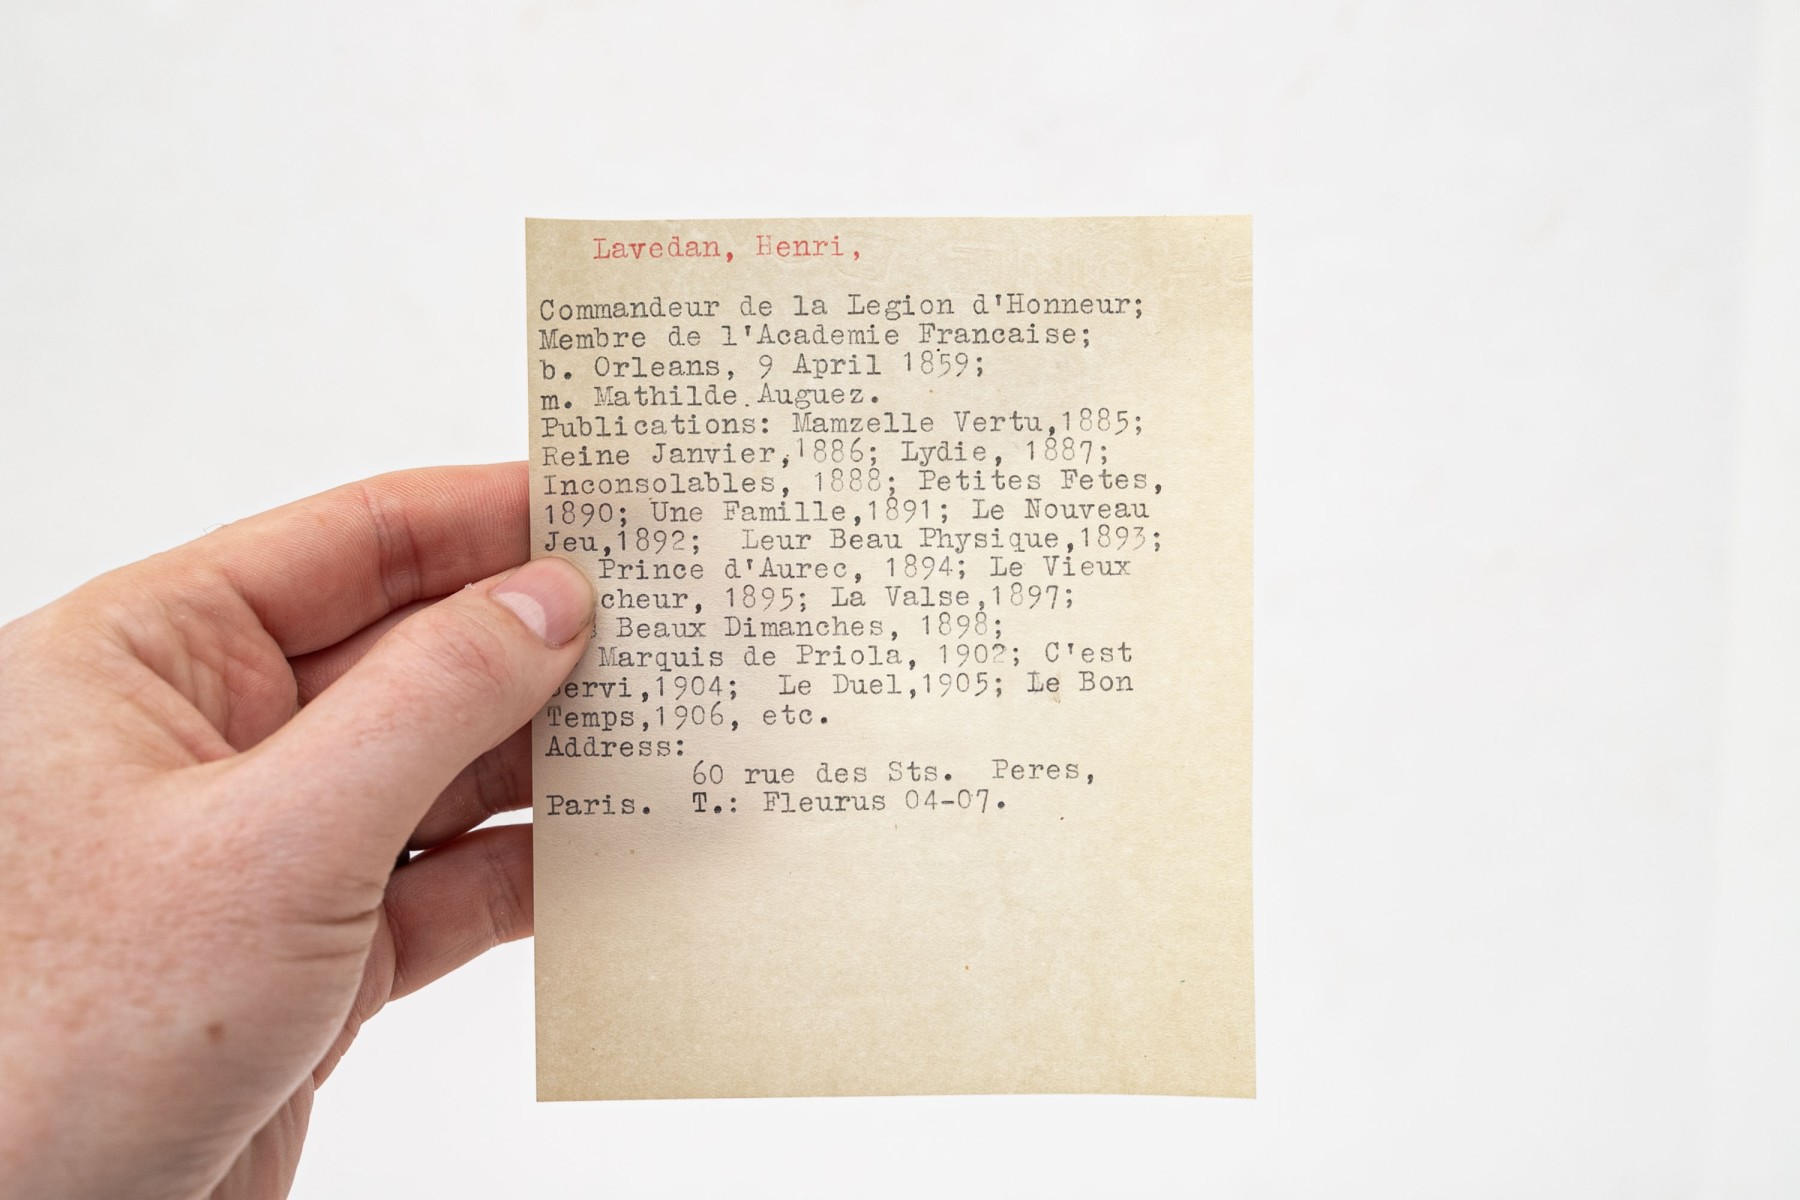 Lavedan, Henri,
Commandeur de la Legion d'Honneur;
Membre de l'Academie Francaise;
b. Orleans, 9 April 1859;
m. Mathilde.Auguez.
Publications: Mamzelle Vertu,1885;
Reine Janvier,1886; Lydie, 1887;
Inconsolables, 1888; Petites Fetes,
1890; Une Famille,1891; Le Nouveau
Jeu,1892;  Leur Beau Physique,1893;
Prince d'Aurec, 1894; Le Vieux
cheur, 1895; La Valse,1897;
Beaux Dimanches, 1898;
Marquis de Priola, 1902; C'est
Servi,1904;  Le Duel,1905; Le Bon
Temps,1906, etc.
Address:
60 rue des Sts.  Peres,
Paris.  T.: Fleurus 04-07.